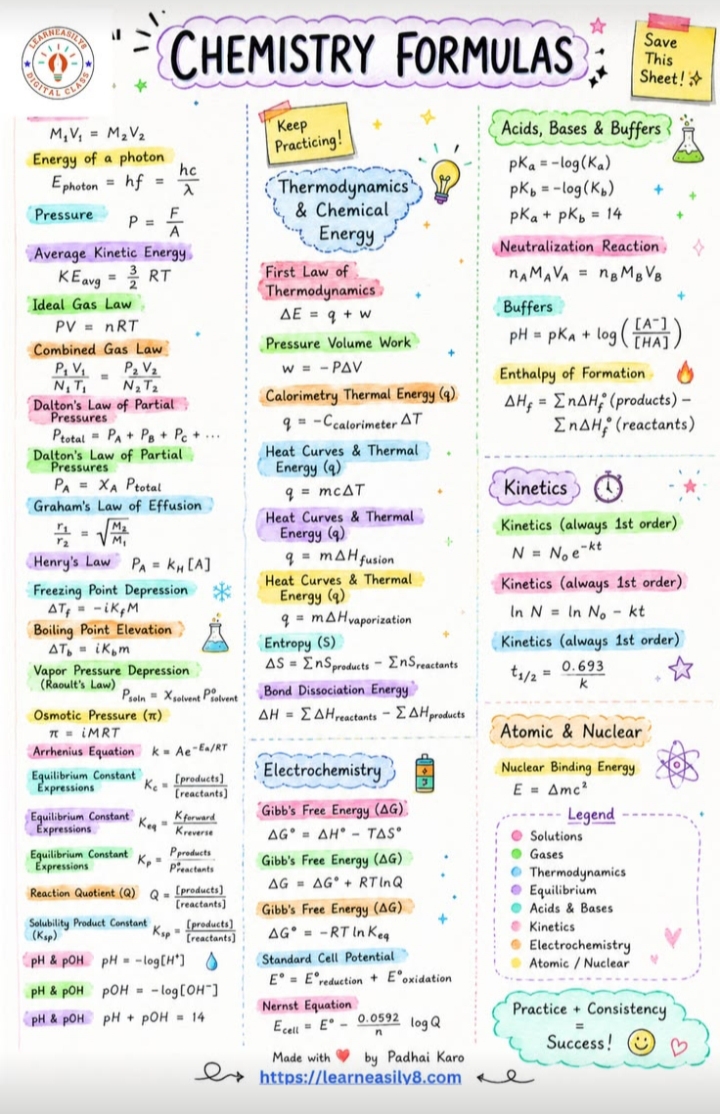 LEARNEASILY8
DIGITAL CLASS
CHEMISTRY FORMULAS
Save
This
Sheet!
M₁V₁ = M₂V₂
Energy of a photon
E_photon = hf = hc/λ
Pressure P = F/A
Average Kinetic Energy
KE_avg = 3/2 RT
Ideal Gas Law
PV = nRT
Combined Gas Law
P₁V₁/N₁T₁ = P₂V₂/N₂T₂
Dalton's Law of Partial
Pressures
P_total = P_A + P_B + P_C + ...
Dalton's Law of Partial
Pressures
P_A = X_A P_total
Graham's Law of Effusion
r₁/r₂ = √(M₂/M₁)
Henry's Law P_A = k_H [A]
Freezing Point Depression
ΔT_f = -iK_fM
Boiling Point Elevation
ΔT_b = iK_bm
Vapor Pressure Depression
(Raoult's Law) P_soln = X_solvent P°_solvent
Osmotic Pressure (π)
π = iMRT
Arrhenius Equation k = Ae^(-Ea/RT)
Equilibrium Constant
Expressions K_c = [products]/[reactants]
Equilibrium Constant
Expressions K_eq = K_forward/K_reverse
Equilibrium Constant
Expressions K_p = P_products/P_reactants
Reaction Quotient (Q) Q = [products]/[reactants]
Solubility Product Constant
(K_sp) K_sp = [products]/[reactants]
pH & pOH pH = -log[H⁺]
pH & pOH pOH = -log[OH⁻]
pH & pOH pH + pOH = 14
Keep
Practicing!
Thermodynamics
& Chemical
Energy
First Law of
Thermodynamics
ΔE = q + w
Pressure Volume Work
w = -PΔV
Calorimetry Thermal Energy (q)
q = -C_calorimeter ΔT
Heat Curves & Thermal
Energy (q)
q = mcΔT
Heat Curves & Thermal
Energy (q)
q = mΔH_fusion
Heat Curves & Thermal
Energy (q)
q = mΔH_vaporization
Entropy (S)
ΔS = ΣnS_products - ΣnS_reactants
Bond Dissociation Energy
ΔH = ΣΔH_reactants - ΣΔH_products
Electrochemistry
Gibb's Free Energy (ΔG)
ΔG° = ΔH° - TΔS°
Gibb's Free Energy (ΔG)
ΔG = ΔG° + RT lnQ
Gibb's Free Energy (ΔG)
ΔG° = -RT ln K_eq
Standard Cell Potential
E° = E°_reduction + E°_oxidation
Nernst Equation
E_cell = E° - 0.0592/n log Q
Acids, Bases & Buffers
pK_a = -log(K_a)
pK_b = -log(K_b)
pK_a + pK_b = 14
Neutralization Reaction
n_A M_A V_A = n_B M_B V_B
Buffers
pH = pK_A + log([A⁻]/[HA])
Enthalpy of Formation
ΔH_f = ΣnΔH_f° (products) -
ΣnΔH_f° (reactants)
Kinetics
Kinetics (always 1st order)
N = N₀e^(-kt)
Kinetics (always 1st order)
ln N = ln N₀ - kt
Kinetics (always 1st order)
t₁/₂ = 0.693/k
Atomic & Nuclear
Nuclear Binding Energy
E = Δmc²
Legend
Solutions
Gases
Thermodynamics
Equilibrium
Acids & Bases
Kinetics
Electrochemistry
Atomic / Nuclear
Practice + Consistency
=
Success!
Made with ❤ by Padhai Karo
https://learneasily8.com